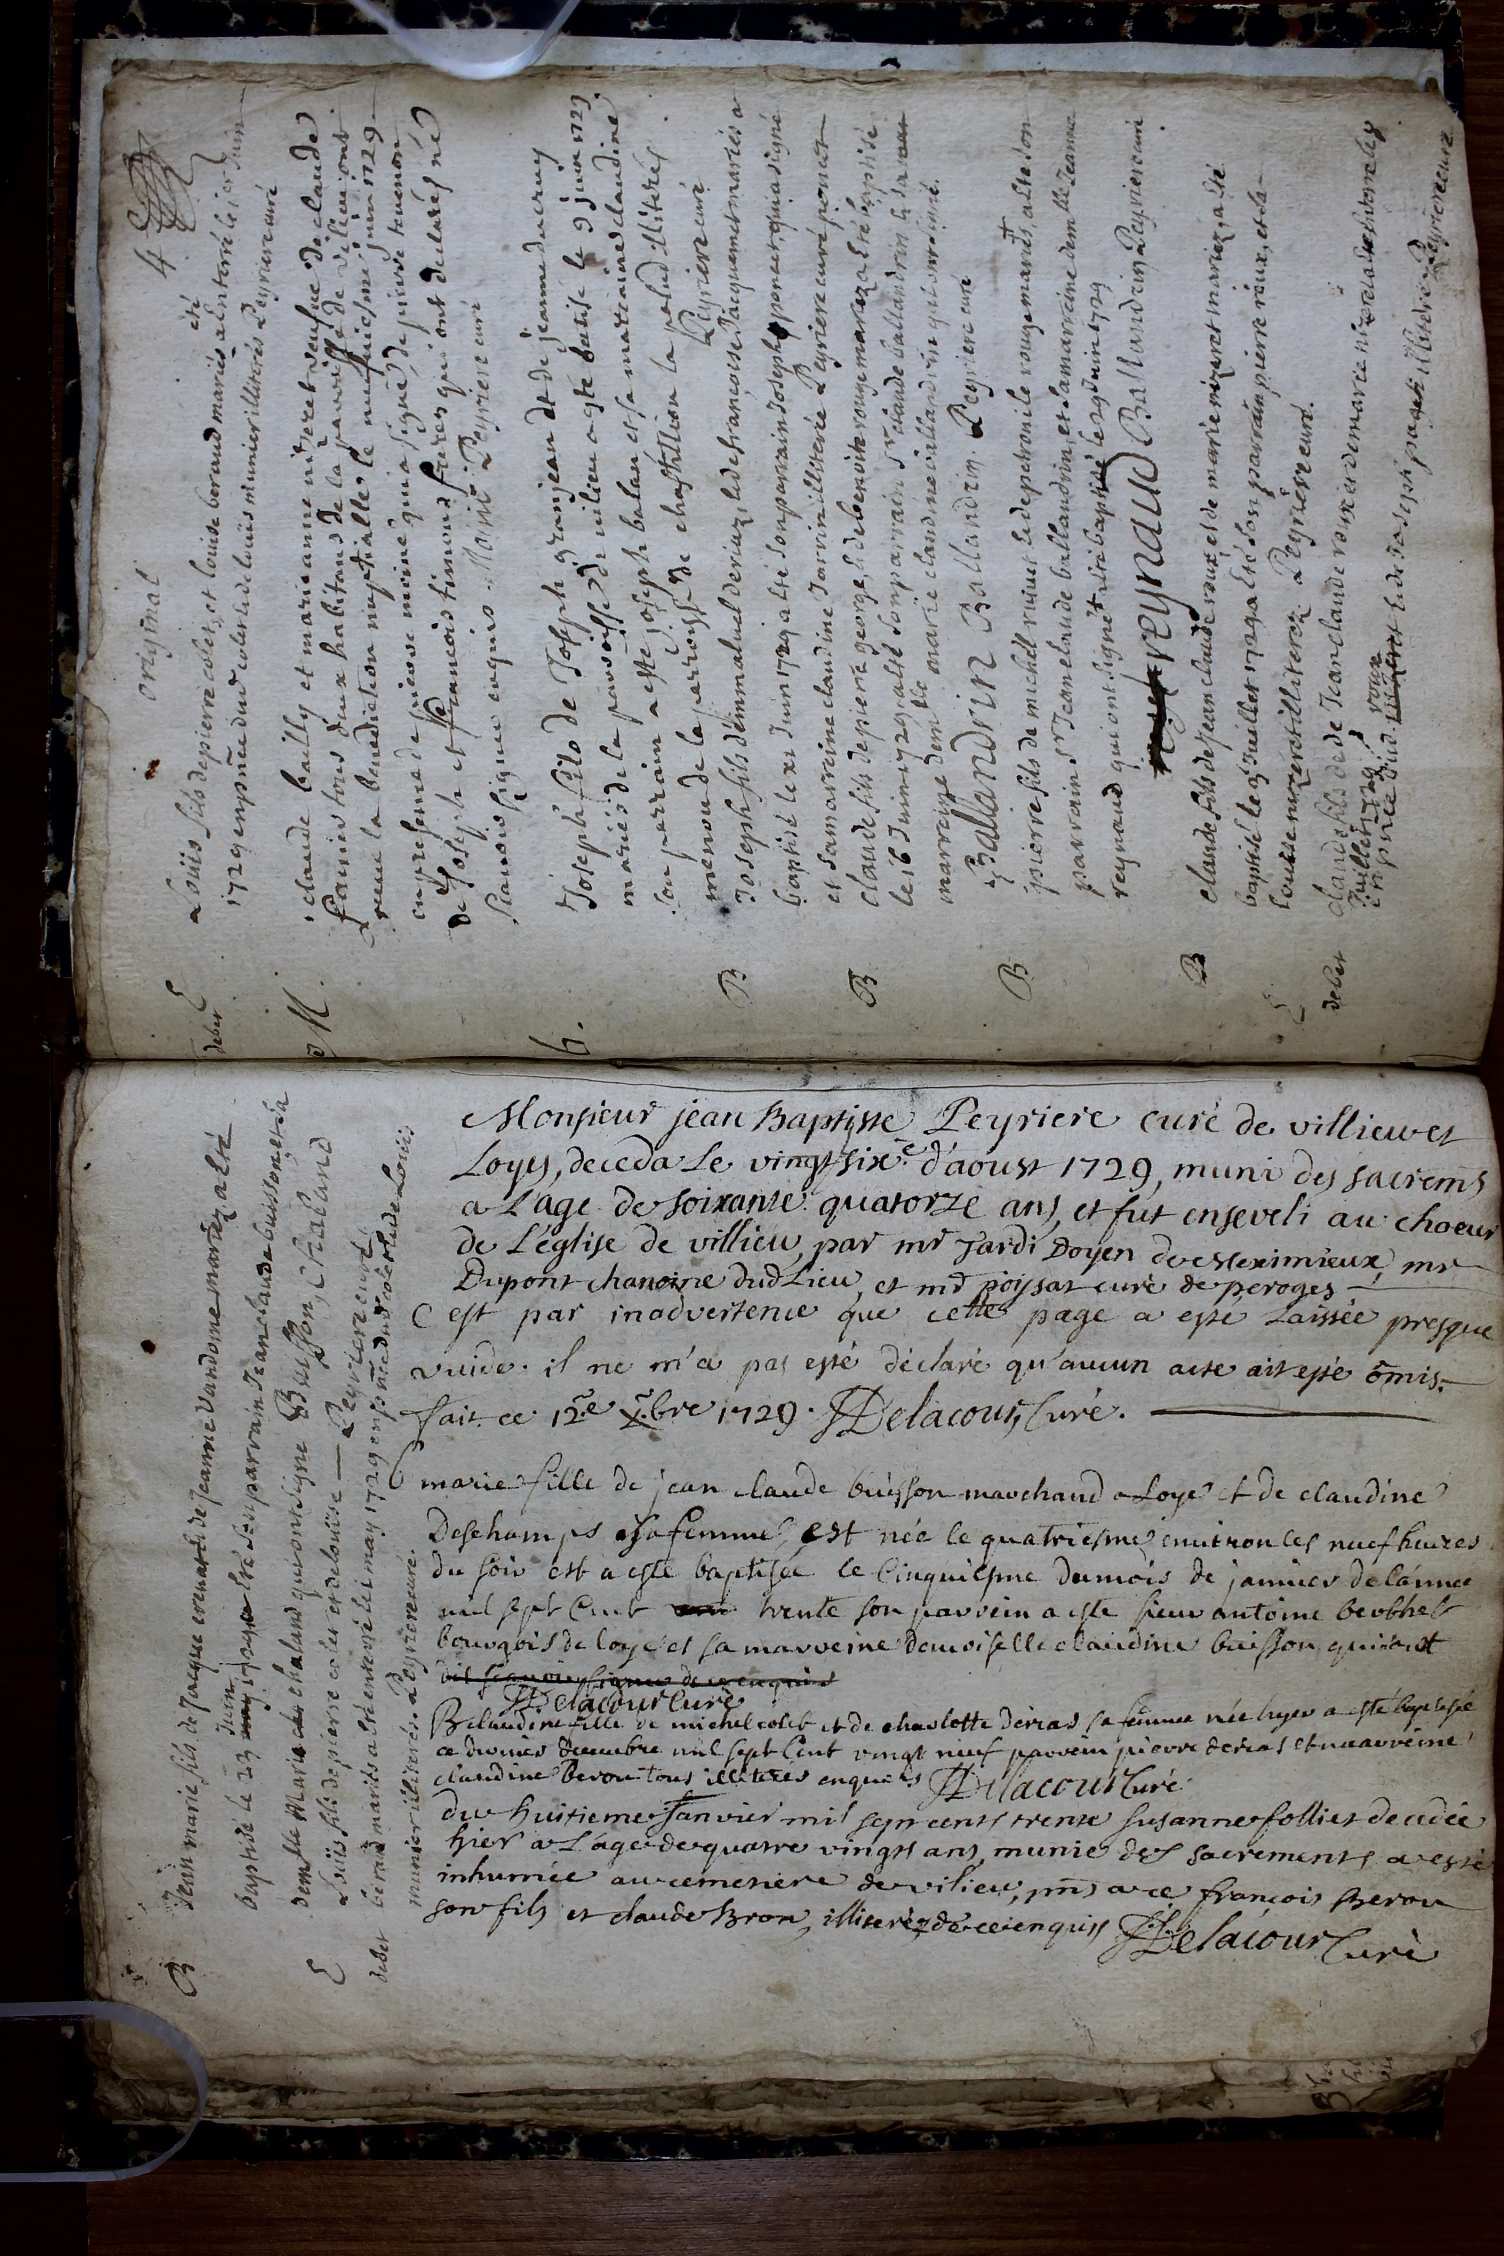 4
original
debet E Louis fils de pierre colet, et louise beraud mariés a été Enterré le 1er Juin
1729 en pñce dud colet et de louis munier illiterés Peyriere curé
M. claude bailly et marie anne nizeret veufue de claude
tous deux habitans de la parroisse de vilieu ont
receu la benediction nuptialle le neufuiesme juin 1729
en presense de pierre moine qui a signé, de pierre teuenon
de Joseph et francois timons freres qui ont declarés ne
scauoir signer enquis. Moine Peyriere curé
b. Joseph fils de Joseph granjean et de jeanne ducruy
mariés de la parroisse de vilieu a esté batisé le 9 juin 1729
son parrain a esté joseph balan et sa marraine claudine
menou de la parroisse de chastillion la palud illiterés.
Peyriere curé
B Joseph fils d'emmanuel deriaz, et de françoise Jacquemet mariés a
baptisé le xi Juin 1729 a été son parrain Joseph poncet, qui a signé
et sa marreine claudine Jarrin illiterée Peyriere curé poncet
B claude fils de pierre george, et de benoite rouge mariez a été baptisé
le 16 Juin 1729 a été son parrain Sr claude ballandrin et sa
marreine demlle marie claudine ballandrin qui ont signé.
Ballandrin Ballandrin. Peyriere curé
B pierre fils de michel riuiret et de petronile rouge mariés, a été son
parrain Sr Jean claude ballandrin, et sa marreine demlle Jeanne
reynaud qui ont signé et été baptisé le 29 Juin 1729
reynaud Ballandrin Peyriere curé
B claude fils de Jean claude roux, et de marie nizeret mariez, a été
baptisé le 3 Juillet 1729 a été son parrain pierre roux, et sa
louise nizeret illiterez Peyriere curé.
E debet claude fils de Jean claude roux et de marie nizeret a été Enterré le 4
Juillet 1729
en pñce dud. roux et de Joseph paget illiterés Peyriere curé
B Jean marie fils de Jaque erenard et de Jeanne Vandome mariez a été
baptisé le 23 Juin 1729 a été son parrain Jean claude buisson, et sa
demlle Marie chaland qui ont signé Buisson, Chaland
E debet Louis fils de pierre colet et de louise — Peyriere curé
beraud mariés a été enterré le 1 may 1729 en pñce dud colet et de Louis
munier illiterés. Peyriere curé.
Monsieur jean Baptiste Peyriere curé de villieu et
Loyes, deceda Le vingt sixe d'aoust 1729, muni des sacremñs
a L'age de soixante quatorze ans, et fut enseveli au choeur
de L'église de villieu, par mr Jardi Doyen de Meximieux, mr
Dupont chanoine dud Lieu, et mr poysat curé de peroges —
C'est par inadvertence que cette page a esté Laissée presque
vuide. il ne m'a pas esté déclaré qu'aucun acte ait esté ōmis.
fait ce 12e Xbre 1729. Delacour, Curé.
marie fille de jean claude buisson marchand a Loye et de claudine
Deschamps sa femme, est née le quatriesme environ les neuf heures
du soir est a esté baptisée le Cinquiesme du mois de janvier de l'année
mil sept Cent trente son parrein a esté sieur antoine berthet
bourgois de loye et sa marreine demoiselle claudine buisson qui ont
dit scavoir signer de ce enquis
Delacour Curé
B claudine fille de michel colet et de charlotte derias sa femme née hyer a esté baptisée
ce dernier decembre mil sept Cent vingt neuf parrein pierre derias et marreine
claudine berou tous illiteres enquis Delacour Curé
du huitieme Janvier mil sept cents trente susanne folliet decedée
hier a L'age de quatre vingts ans, munie des sacrements a esté
inhumée au cemetiere de vilieu, pñs a ce françois Berou
son fils et claude Bron, illiterez de ce enquis Delacour Curé